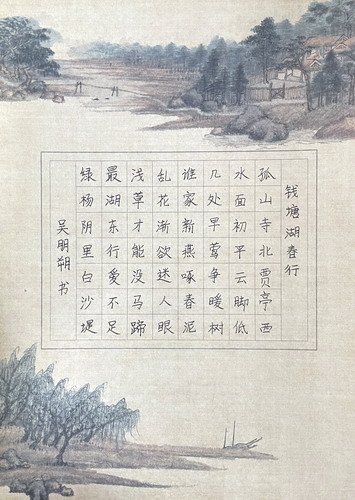 钱塘湖春行
孤山寺北贾亭西
水面初平云脚低
几处早莺争暖树
谁家新燕啄春泥
乱花渐欲迷人眼
浅草才能没马蹄
最湖东行爱不足
绿杨阴里白沙堤
吴朋朔书